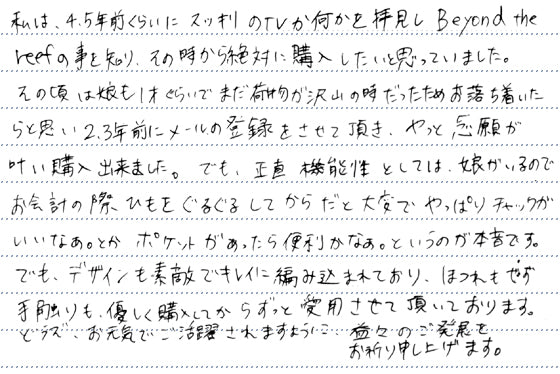 私は、4.5年前くらいに スッキリ のTVか何かを拝見し Beyond the
reefの事を知り、その時から絶対に購入したいと思っていました。
その頃は娘も1才ぐらいでまだ荷物が沢山の時だったためお落ち着いた
らと思い2.3年前にメールの登録をさせて頂き、やっと念願が
叶い購入出来ました。でも、正直 機能性としては、娘がいるので
お会計の際 ひもをぐるぐるしてからだと大変で やっぱりチャックが
いいなぁ。とか ポケットがあったら便利かなぁ。というのが本音です。
でも、デザインも素敵でキレイに編み込まれており、ほつれもせず
手触りも、優しく購入してからずっと愛用させて頂いております。
どうぞ、お元気でご活躍されますように 益々のご発展を
お祈り申し上げます。